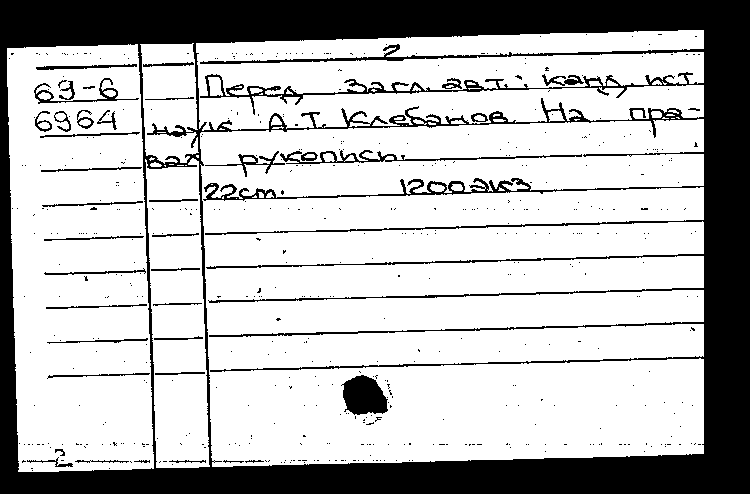 2
69-6 Перед загл. авт.: канд. ист.
6964 наук А.Т. Клебанов. На пра-
вах рукописи.
22см. 1200экз.
2